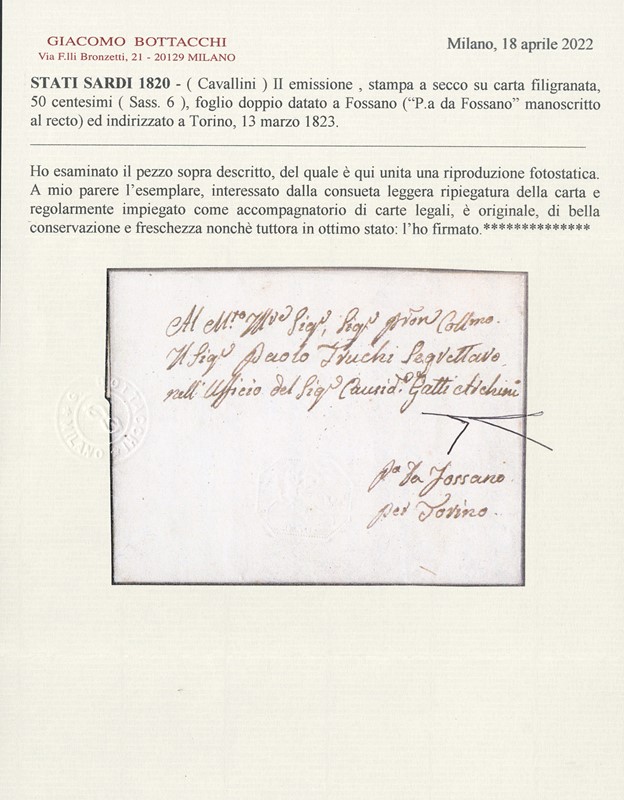 GIACOMO BOTTACCHI
Via F.lli Bronzetti, 21 - 20129 MILANO
Milano, 18 aprile 2022
STATI SARDI 1820 - ( Cavallini ) II emissione , stampa a secco su carta filigranata,
50 centesimi ( Sass. 6 ), foglio doppio datato a Fossano (“P.a da Fossano” manoscritto
al recto) ed indirizzato a Torino, 13 marzo 1823.
Ho esaminato il pezzo sopra descritto, del quale è qui unita una riproduzione fotostatica.
A mio parere l’esemplare, interessato dalla consueta leggera ripiegatura della carta e
regolarmente impiegato come accompagnatorio di carte legali, è originale, di bella
conservazione e freschezza nonchè tuttora in ottimo stato: l’ho firmato.**************
Al M.to Ill.re Sig.r, Sig.r Pron Collmo.
Il Sig.r Paolo Truchi Segrettaro
nell' Ufficio del Sig.r Causid.o Gatti
P.a da Fossano
per Torino.
MILANO